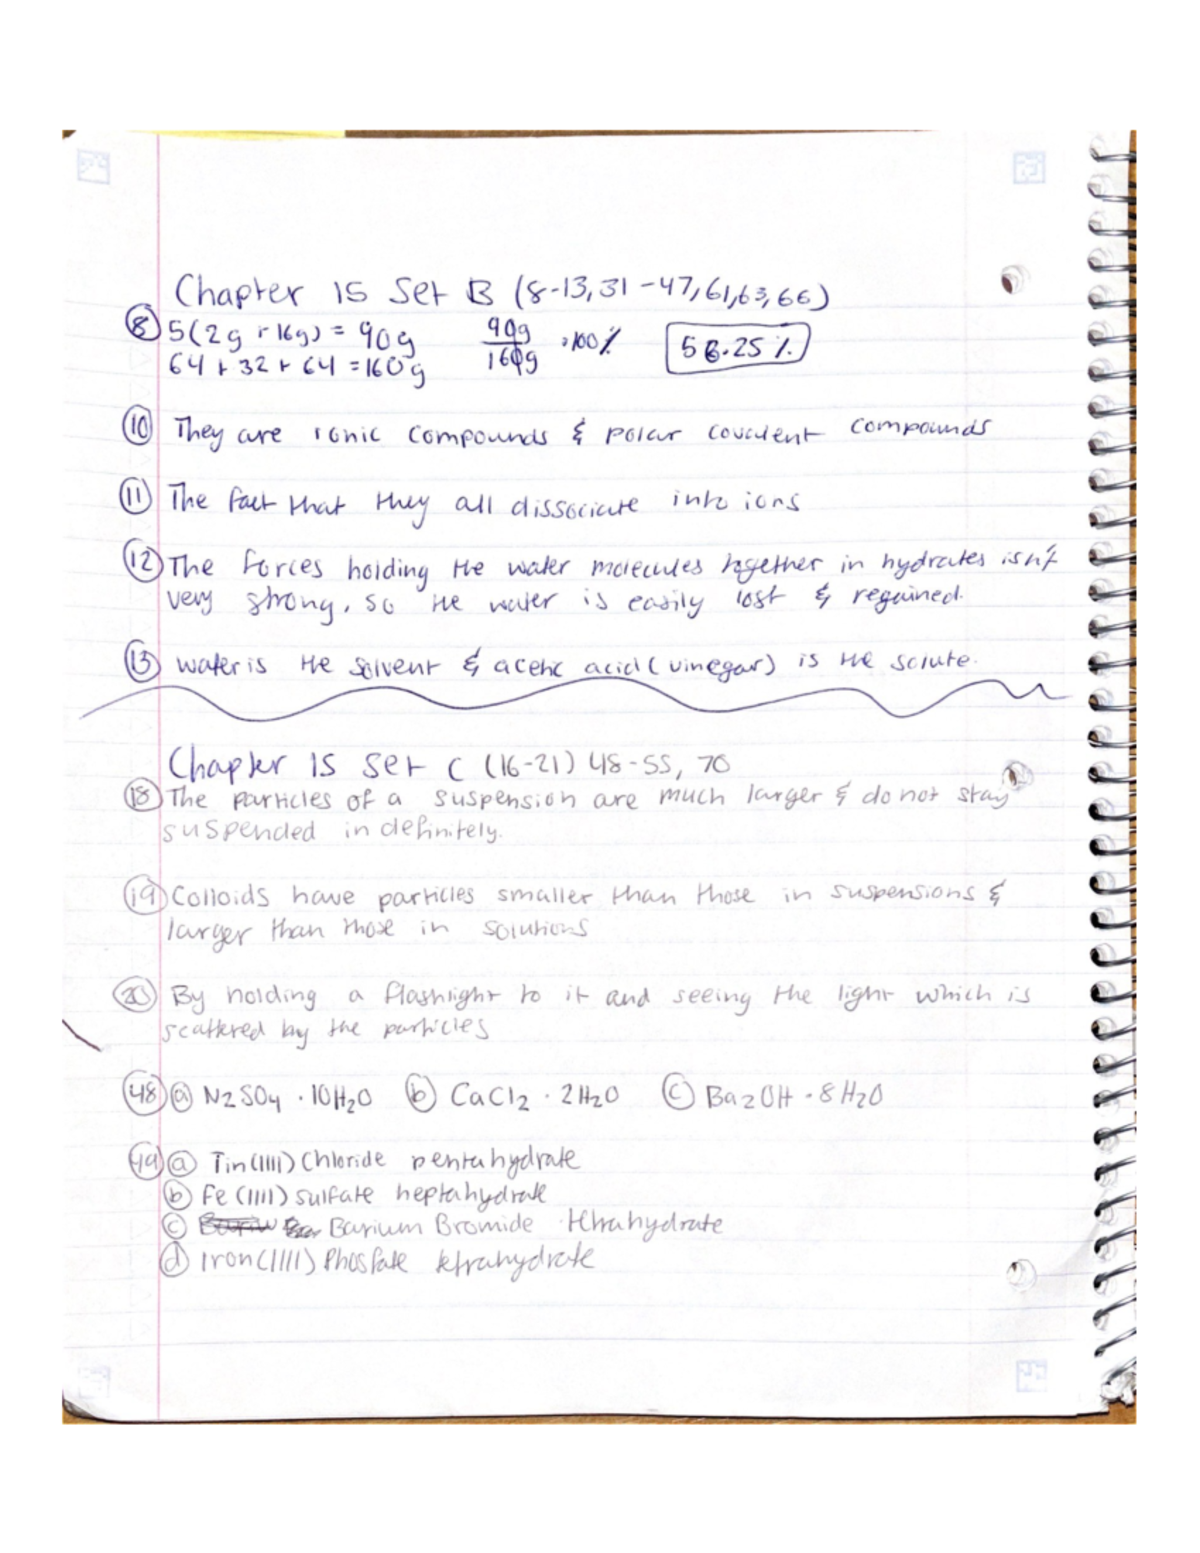 Chapter 15 Set B (8-13, 31-47, 61, 63, 66)
⑧ 5(2g + 16g) = 90g 90g/160g · 100% 56.25%
64 + 32 + 64 = 160g
⑩ They are ionic compounds & polar covalent compounds
⑪ The fact that they all dissociate into ions
⑫ The forces holding the water molecules together in hydrates isn't
very strong, so the water is easily lost & regained.
⑬ water is the solvent & acetic acid (vinegar) is the solute.
Chapter 15 Set C (16-21) 48-55, 70
⑱ The particles of a suspension are much larger & do not stay
suspended indefinitely.
⑲ Colloids have particles smaller than those in suspensions &
larger than those in solutions
⑳ By holding a flashlight to it and seeing the light which is
scattered by the particles
㊽ ⓐ N2SO4 · 10H2O ⓑ CaCl2 · 2H2O ⓒ Ba2OH · 8H2O
㊾ ⓐ Tin(IIII) Chloride pentahydrate
ⓑ Fe(IIII) sulfate heptahydrate
ⓒ Barium Bromide tetrahydrate
ⓓ Iron(IIII) Phosfate tetrahydrate